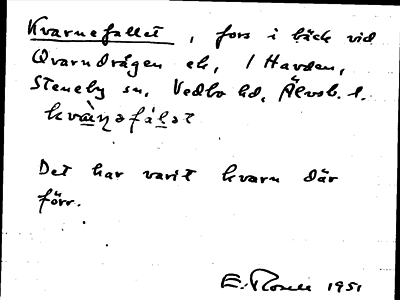 Kvarnefallet, fors i bäck vid
Qvarndrågen ek, 1 Havden,
Steneby sn, Vedbo hd, Älvsb. l.
kvàṇəfáḷət
Det har varit kvarn där
förr.
E. Rosell 1951